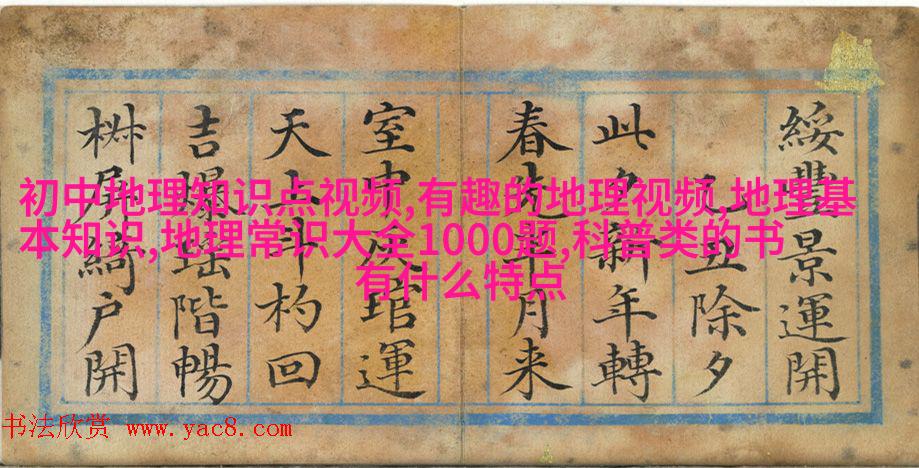 綏豐景運開
乙丑除夕
此夕新年轉
春先半月来
室中灰琯運
天上斗杓回
吉爆瑶階暢
椒屏綺戶開
初中地理知识点视频,有趣的地理视频,地理基
本知识,地理常识大全1000题,科普类的书
有什么特点
书法欣赏 www.yac8.com